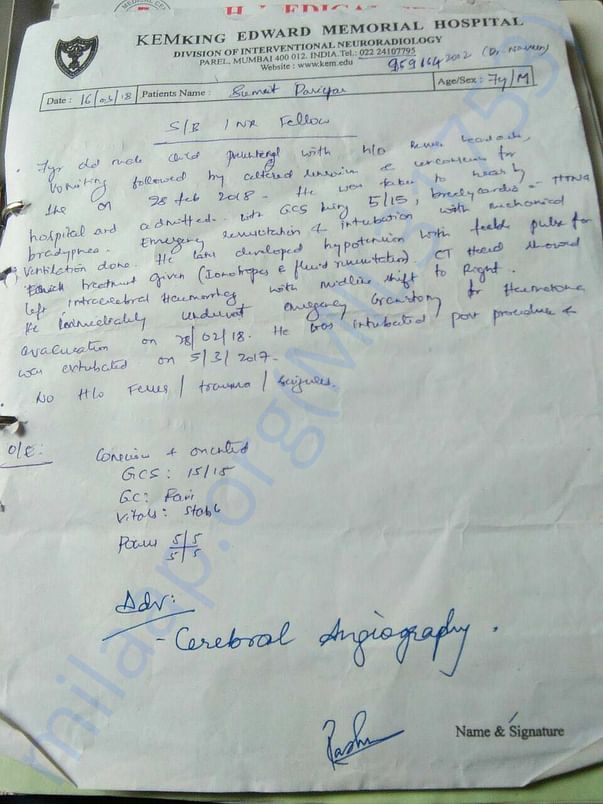 KEMKING EDWARD MEMORIAL HOSPITAL
DIVISION OF INTERVENTIONAL NEURORADIOLOGY
PAREL, MUMBAI 400 012. INDIA. Tel.: 022 24107795
Website : www.kem.edu
(Dr. Naveen)
Date : 16/03/18 Patients Name : Sumeet Pariyar Age/Sex : 7y/M
S/B INR Fellow
7yr old male child presented with h/o severe headache,
vomiting followed by altered sensorium &
on 28 feb 2018. He was taken to nearby
hospital and admitted with GCS being 5/15, bradycardia, HTN &
bradypnea. Emergency resuscitation & intubation with mechanical
ventilation done. He later developed hypotension with feeble pulse for
which treatment given (Ionotropes & fluid resuscitation). CT Head showed
left intracerebral Haemorrhage with midline shift to Right.
He immediately underwent emergency craniotomy for Haematoma
evacuation on 28/02/18. He was intubated post procedure &
was extubated on 5/3/2017.
No H/o Fever / trauma / seizures.
O/E: Conscious & oriented
GCS : 15/15
GC: Fair
Vitals: Stable
Power 5/5 5/5
Adv:
- Cerebral Angiography.
Name & Signature
milaap.org